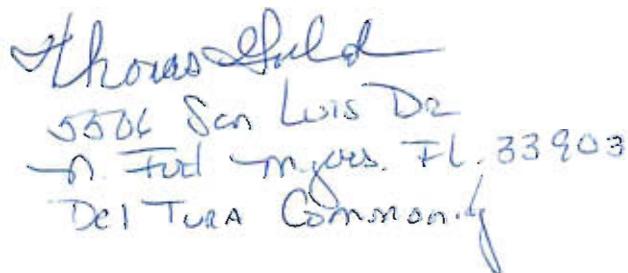 Thomas Guld
5506 San Luis Dr
N. Fort Myers. FL. 33903
Del Tura Community